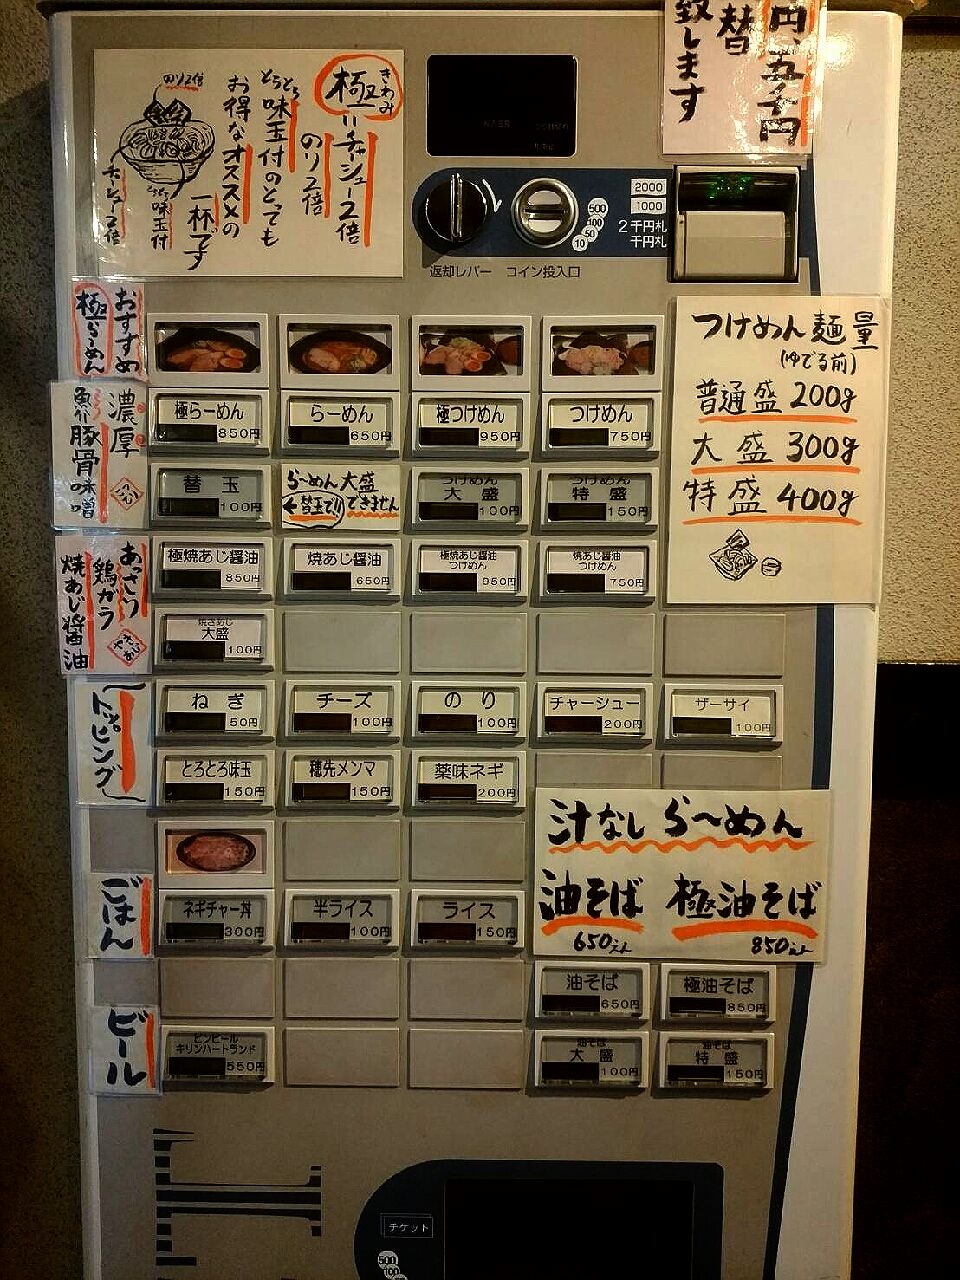 円、五千円
替
致します
極
きわみ
=チャーシュー2倍
のり2倍
とろとろ
味玉付のとても
お得なオススメの
一杯です
のり2倍
チャーシュー2倍
とろとろ
味玉付
2000
1000
2千円札
千円札
500
100
50
10
返却レバー コイン投入口
おすすめ
極らーめん
つけめん麺量
(ゆでる前)
普通盛 200g
大盛 300g
特盛 400g
極らーめん 850円
らーめん 650円
極つけめん 950円
つけめん 750円
濃厚
魚介豚骨味噌
こってり
替玉 100円
らーめん大盛
できません
←替玉で!
つけめん
大盛 100円
つけめん
特盛 150円
あっさり
鶏ガラ
焼あじ醤油
極焼あじ醤油 850円
焼あじ醤油 650円
極焼あじ醤油
つけめん 950円
焼あじ醤油
つけめん 750円
大盛 100円
トッピング
ねぎ 50円
チーズ 100円
のり 100円
チャーシュー 200円
ザーサイ 100円
とろとろ味玉 150円
穂先メンマ 150円
薬味ネギ 200円
汁なしらーめん
油そば 極油そば
650えん 850えん
ごはん
ネギチャー丼 300円
半ライス 100円
ライス 150円
油そば 650円
極油そば 850円
ビール
ビンビール
キリンハートランド 550円
油そば
大盛 100円
油そば
特盛 150円
チケット
500
100